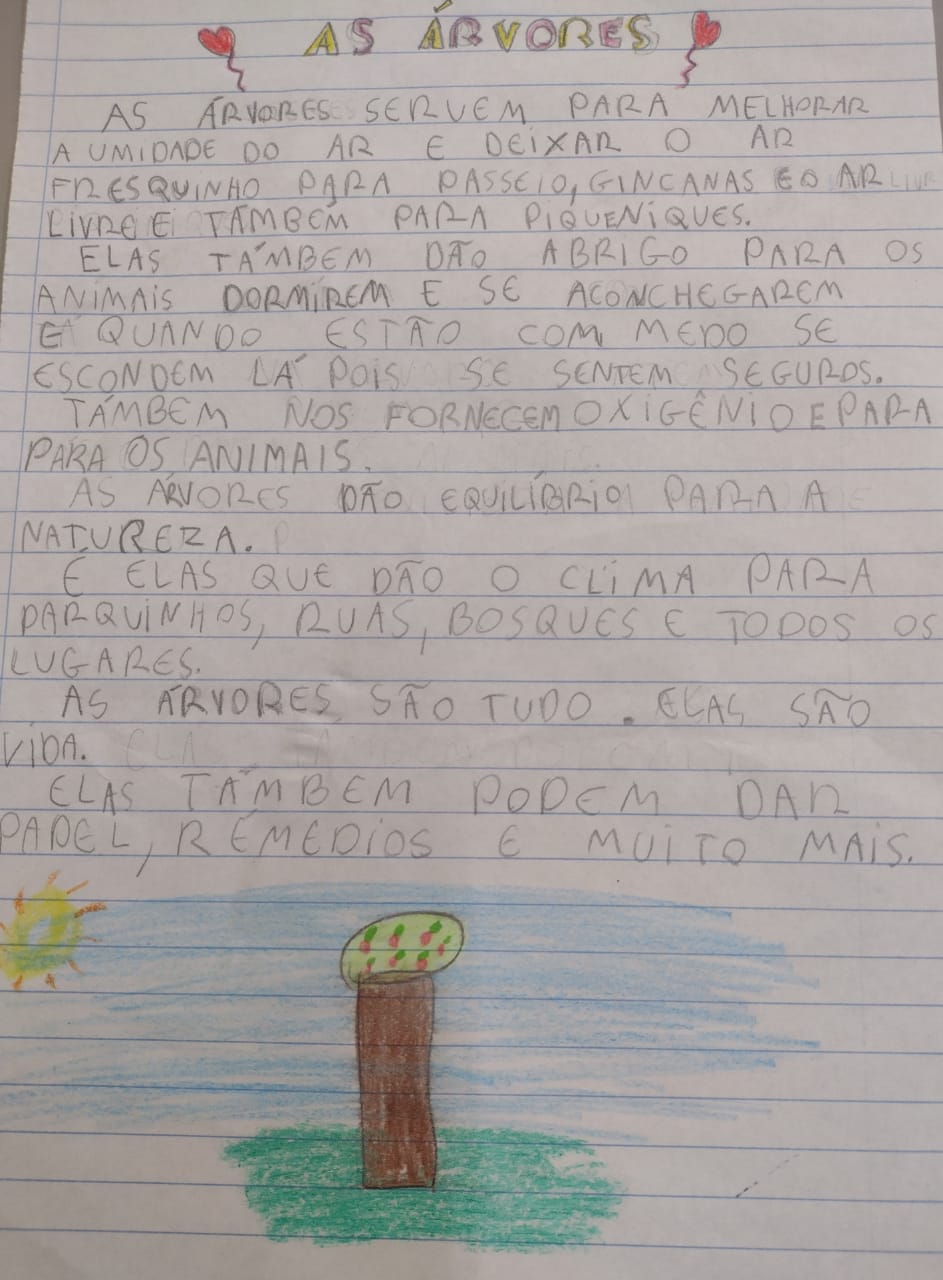 AS ÁRVORES
AS ÁRVORES SERVEM PARA MELHORAR
A UMIDADE DO AR E DEIXAR O AR
FRESQUINHO PARA PASSEIO, GINCANAS EO AR
LIVRE E TÁMBEM PARA PIQUENIQUES.
ELAS TÁMBEM DÃO ABRIGO PARA OS
ANIMAIS DORMIREM E SE ACONCHEGAREM
E QUANDO ESTÃO COM MEDO SE
ESCONDEM LÁ POIS SE SENTEM SEGUROS.
TÁMBEM NOS FORNECEM OXIGÊNIO E PARA
PARA OS ANIMAIS.
AS ÁRVORES DÃO EQUILÍBRIO PARA A
NATUREZA.
É ELAS QUE DÃO O CLIMA PARA
PARQUINHOS, RUAS, BOSQUES E TODOS OS
LUGARES.
AS ÁRVORES SÃO TUDO. ELAS SÃO
VIDA.
ELAS TÁMBEM PODEM DAR
PAPEL, REMÉDIOS E MUITO MAIS.